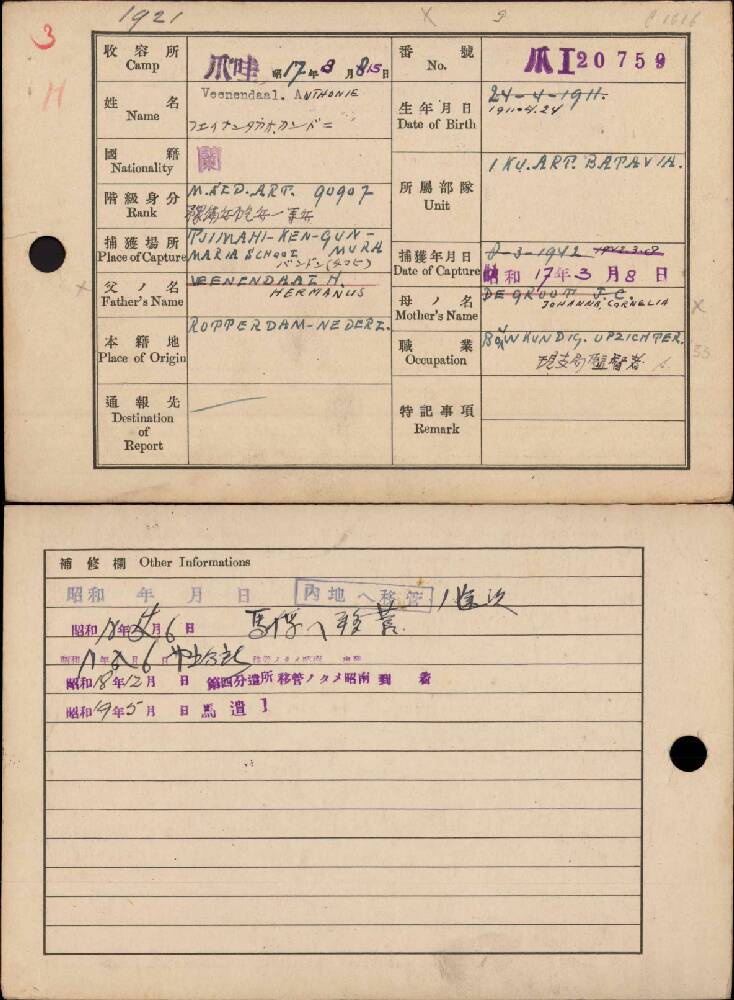 1921
3
H
收容所 Camp
爪哇 昭17年8月15日
番號 No.
爪I 20759
姓名 Name
Veenendaal. ANTHONIE
生年月日 Date of Birth
24-4-1911.
1911.4.24
國籍 Nationality
蘭
階級身分 Rank
M.AFD.ART. 90907
所屬部隊 Unit
1 KU.ART. BATAVIA.
捕獲場所 Place of Capture
TJIMAHI-KEN-GUN-
MARIA SCHOOL MURA
捕獲年月日 Date of Capture
8-3-1942 1942.3.8
昭和17年3月8日
父ノ名 Father's Name
VEENENDAAL H.
HERMANUS
母ノ名 Mother's Name
DE GROOT J.C.
JOHANNA, CORNELIA
本籍地 Place of Origin
ROTTERDAM-NEDERL.
職業 Occupation
BOUWKUNDIG. OPZICHTER.
通報先 Destination of Report
特記事項 Remark
補修欄 Other Informations
昭和 年 月 日 內地へ移管
昭和18年 月6日
昭和18年12月 日 第四分遣所移管ノタメ昭南到着
昭和19年5月 日 馬遣I